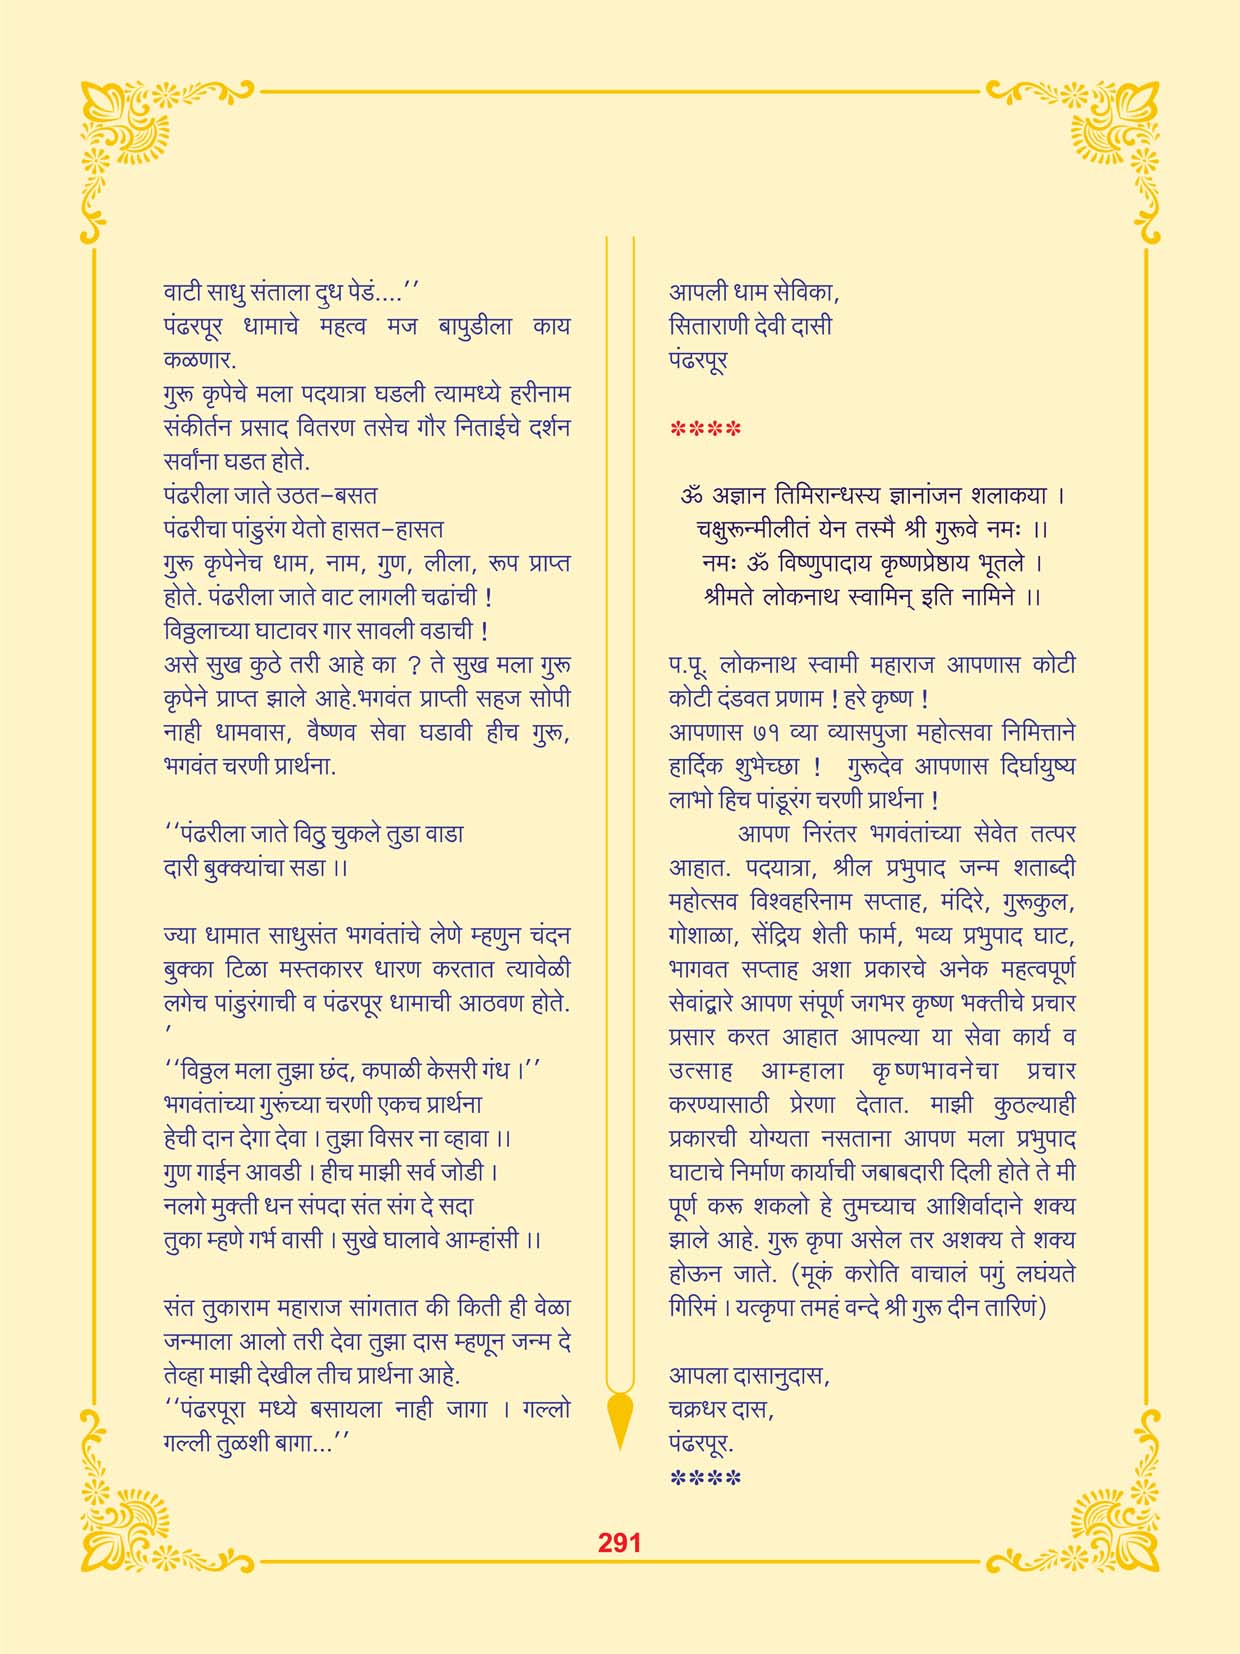 वाटी साधु संताला दुध पेडं....’’
पंढरपूर धामाचे महत्व मज बापुडीला काय
कळणार.
गुरू कृपेचे मला पदयात्रा घडली त्यामध्ये हरीनाम
संकीर्तन प्रसाद वितरण तसेच गौर निताईचे दर्शन
सर्वांना घडत होते.
पंढरीला जाते उठत–बसत
पंढरीचा पांडुरंग येतो हासत–हासत
गुरू कृपेनेच धाम, नाम, गुण, लीला, रूप प्राप्त
होते. पंढरीला जाते वाट लागली चढांची !
विठ्ठलाच्या घाटावर गार सावली वडाची !
असे सुख कुठे तरी आहे का ? ते सुख मला गुरू
कृपेने प्राप्त झाले आहे.भगवंत प्राप्ती सहज सोपी
नाही धामवास, वैष्णव सेवा घडावी हीच गुरू,
भगवंत चरणी प्रार्थना.
‘‘पंढरीला जाते विठु चुकले तुडा वाडा
दारी बुक्क्यांचा सडा ।।
ज्या धामात साधुसंत भगवंतांचे लेणे म्हणुन चंदन
बुक्का टिळा मस्तकारर धारण करतात त्यावेळी
लगेच पांडुरंगाची व पंढरपूर धामाची आठवण होते.
’
‘‘विठ्ठल मला तुझा छंद, कपाळी केसरी गंध ।’’
भगवंतांच्या गुरूंच्या चरणी एकच प्रार्थना
हेची दान देगा देवा । तुझा विसर ना व्हावा ।।
गुण गाईन आवडी । हीच माझी सर्व जोडी ।
नलगे मुक्ती धन संपदा संत संग दे सदा
तुका म्हणे गर्भ वासी । सुखे घालावे आम्हांसी ।।
संत तुकाराम महाराज सांगतात की किती ही वेळा
जन्माला आलो तरी देवा तुझा दास म्हणून जन्म दे
तेव्हा माझी देखील तीच प्रार्थना आहे.
‘‘पंढरपूरा मध्ये बसायला नाही जागा । गल्लो
गल्ली तुळशी बागा...’’
आपली धाम सेविका,
सिताराणी देवी दासी
पंढरपूर
****
ॐ अज्ञान तिमिरान्धस्य ज्ञानांजन शलाकया ।
चक्षुरून्मीलीतं येन तस्मै श्री गुरूवे नमः ।।
नमः ॐ विष्णुपादाय कृष्णप्रेष्ठाय भूतले ।
श्रीमते लोकनाथ स्वामिन् इति नामिने ।।
प.पू. लोकनाथ स्वामी महाराज आपणास कोटी
कोटी दंडवत प्रणाम ! हरे कृष्ण !
आपणास ७१ व्या व्यासपुजा महोत्सवा निमित्ताने
हार्दिक शुभेच्छा ! गुरूदेव आपणास दिर्घायुष्य
लाभो हिच पांडूरंग चरणी प्रार्थना !
आपण निरंतर भगवंतांच्या सेवेत तत्पर
आहात. पदयात्रा, श्रील प्रभुपाद जन्म शताब्दी
महोत्सव विश्वहरिनाम सप्ताह, मंदिरे, गुरूकुल,
गोशाळा, सेंद्रिय शेती फार्म, भव्य प्रभुपाद घाट,
भागवत सप्ताह अशा प्रकारचे अनेक महत्वपूर्ण
सेवांद्वारे आपण संपूर्ण जगभर कृष्ण भक्तीचे प्रचार
प्रसार करत आहात आपल्या या सेवा कार्य व
उत्साह आम्हाला कृष्णभावनेचा प्रचार
करण्यासाठी प्रेरणा देतात. माझी कुठल्याही
प्रकारची योग्यता नसताना आपण मला प्रभुपाद
घाटाचे निर्माण कार्याची जबाबदारी दिली होते ते मी
पूर्ण करू शकलो हे तुमच्याच आशिर्वादाने शक्य
झाले आहे. गुरू कृपा असेल तर अशक्य ते शक्य
होऊन जाते. (मूकं करोति वाचालं पगुं लघंयते
गिरिमं । यत्कृपा तमहं वन्दे श्री गुरू दीन तारिणं)
आपला दासानुदास,
चक्रधर दास,
पंढरपूर.
****
291